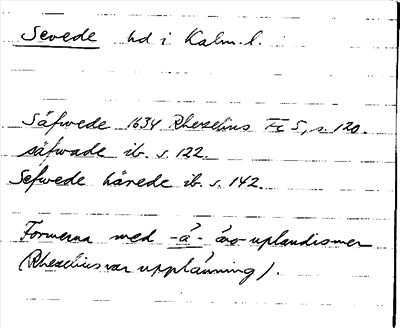 Sevede hd i Kalm. l.
Säfwede 1634 Rhezelius Fc 5, s. 120.
säfwade ib. s. 122.
Sefwede härede ib. s. 142.
Formerna med -ä- äro uplandismer
(Rhezelius var upplänning).